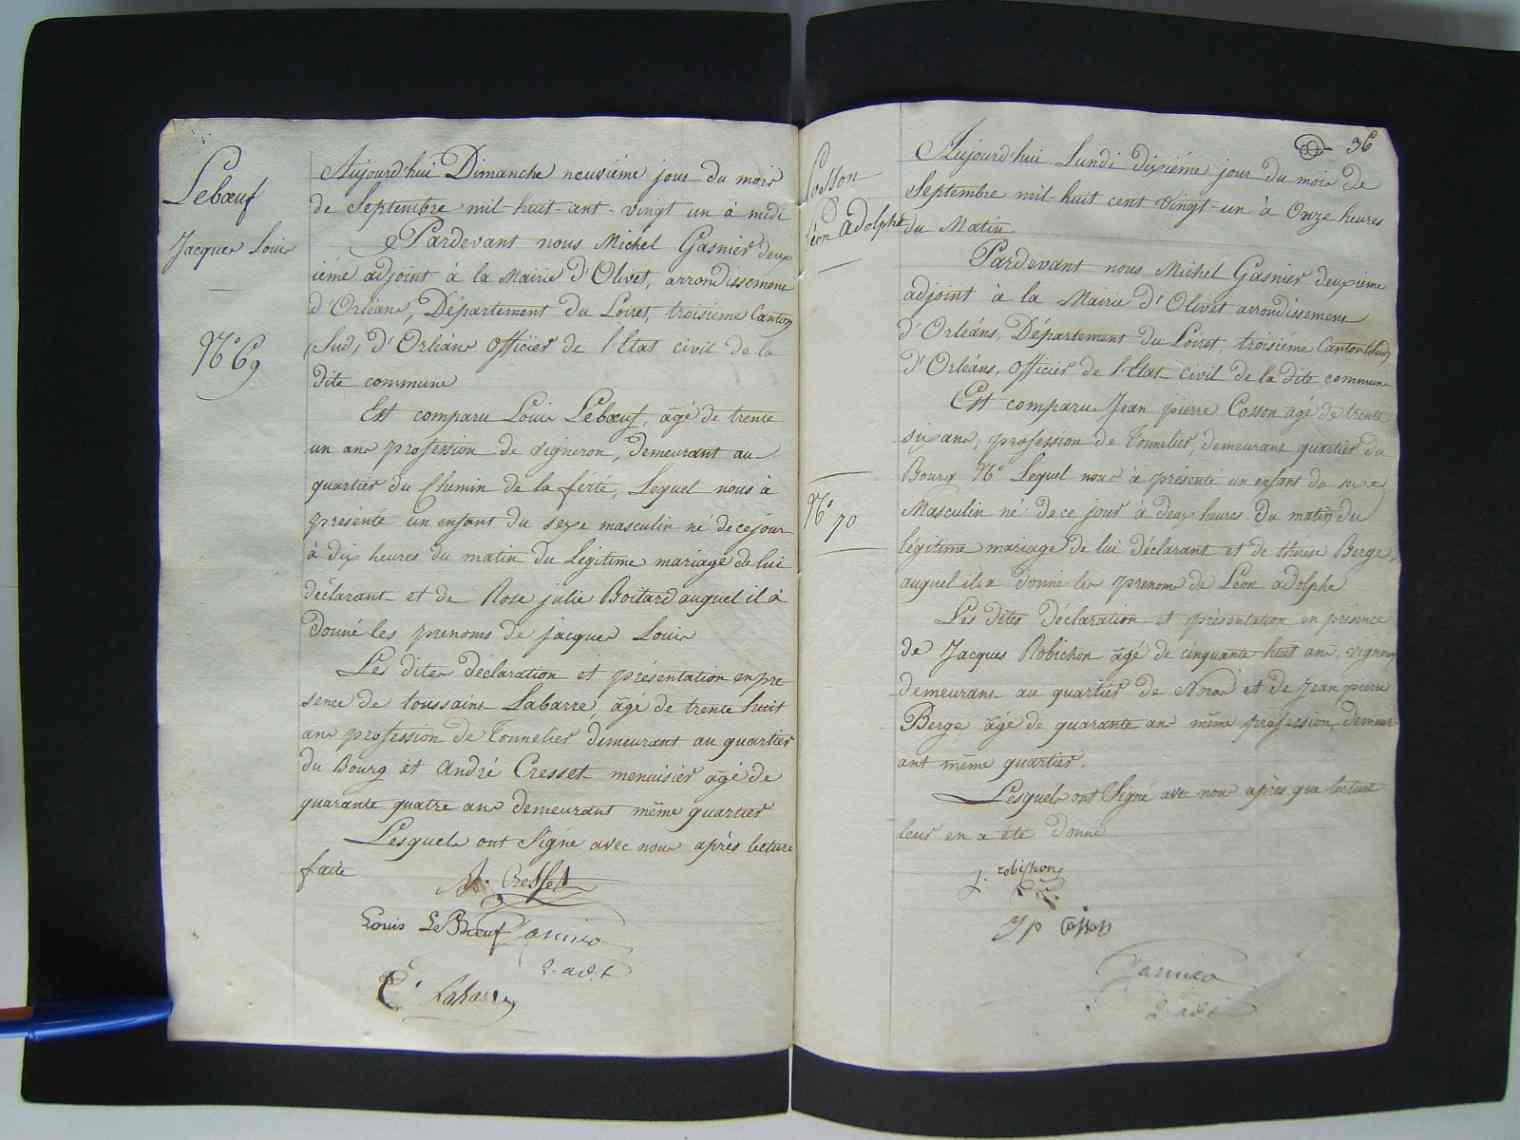 Lebœuf
Jacques Louis
N° 69
Aujourd'hui Dimanche neuvième jour du mois
de Septembre mil-huit-cent-vingt un à midi
Pardevant nous Michel Gasnier deux
ième adjoint à la Mairie d'Olivet, arrondissement
d'Orléans, Département du Loiret, troisième Canton
(Sud) d'Orléans officier de l'Etat civil de la
dite commune
Est comparu Louis Lebœuf, agé de trente
un ans profession de vigneron, demeurant au
quartier du Chemin de la ferté, Lequel nous à
présenté un enfant du sexe masculin né de ce jour
à dix heures du matin du légitime mariage de lui
déclarant et de Rose julie Boitard auquel il à
donné les prenoms de jacques Louis
Les dites déclaration et présentation en pre
sence de toussaint Labarre agé de trente huit
ans profession de Tonnelier demeurant au quartier
du Bourg et andré Cresset menuisier agé de
quarante quatre ans demeurant même quartier
Lesquels ont Signé avec nous après lecture
faite
A. Cresset
Louis LeBœuf Gasnier
2. adt
Labarre
36
Cosson
Léon Adolphe
N° 70
Aujourd'hui Lundi dixième jour du mois de
Septembre mil-huit cent vingt-un à Onze heures
du Matin
Pardevant nous Michel Gasnier deuxième
adjoint à la Mairie d'Olivet arrondissement
d'Orléans, Département du Loiret, troisième Canton (Sud)
d'Orléans, officier de l'Etat civil de la dite commune
Est comparu Jean pierre Cosson agé de trente
six ans, profession de Tonnelier, demeurant quartier du
Bourg N° Lequel nous à présenté un enfant du sexe
Masculin né de ce jour à deux heures du matin du
légitime mariage de lui déclarant et de thérèse Berge,
auquel il a donné les prenoms de Léon adolphe
Les dites déclaration et présentation en présence
de Jacques Robichon agé de cinquante huit ans, vigneron
demeurant au quartier de et de Jean pierre
Berge agé de quarante ans même profession, demeur
ant même quartier.
Lesquels ont Signé avec nous après que lecture
leur en a été donné
J. robichon
J p Cosson
Gasnier
2. adt